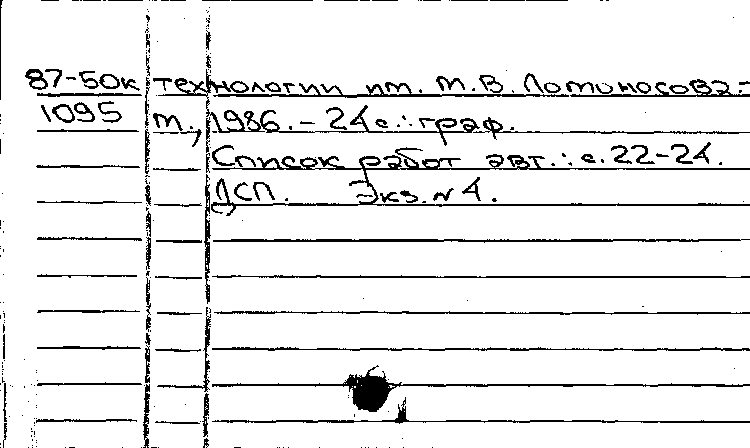 87-50к технологии им. М.В. Ломоносова.-
1095 М., 1986. - 24 с.: граф.
Список работ авт.: с. 22-24.
ДСП. Экз. № 4.